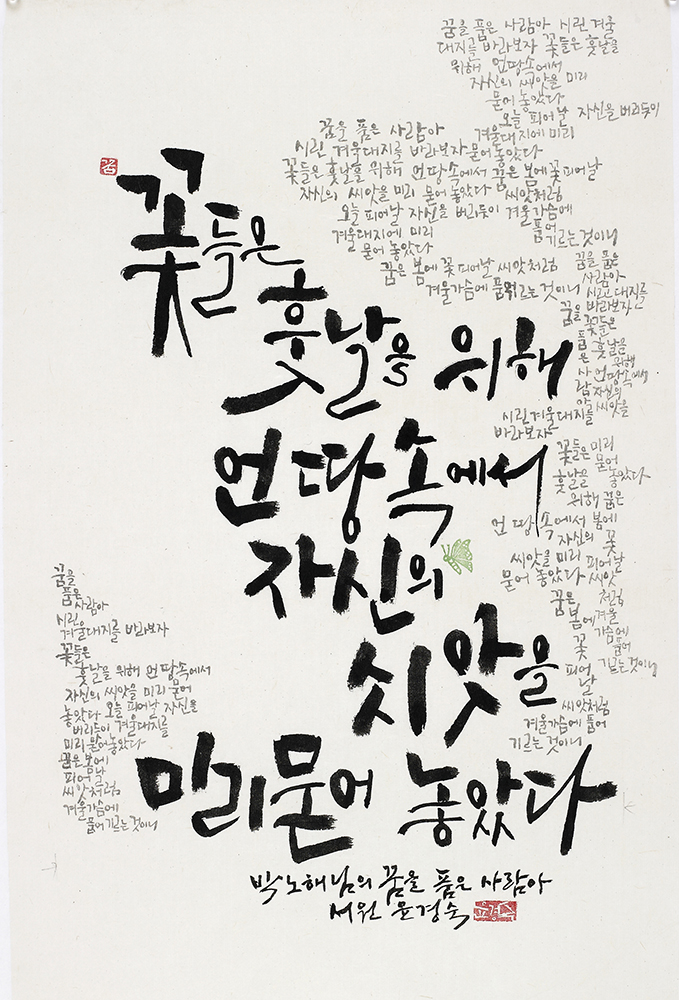 꿈을 품은 사람아 시린 겨울
대지를 바라보자 꽃들은 훗날을
위해 언땅속에서
자신의 씨앗을 미리
묻어 놓았다
오늘 피어날 자신을 버리듯이
겨울대지에 미리
묻어놓았다
꿈을 품은 사람아
시린 겨울대지를 바라보자
꽃들은 훗날을 위해 언땅속에서 꿈은 봄에 꽃피어날
자신의 씨앗을 미리 묻어 놓았다 씨앗처럼
오늘 피어날 자신을 버리듯이 겨울가슴에
겨울대지에 미리 품어
묻어 놓았다 기르는 것이니
꿈은 봄에 꽃 피어날 씨앗처럼
겨울가슴에 품어 기르는 것이니
꽃들은
훗날을 위해
언땅속에서
자신의
씨앗을
미리묻어 놓았다
꿈을 품은
사람아
시린 대지를
바라보자
꽃들은
훗날을
위해
언땅속에서
자신의
씨앗을
꿈을
품은
사람아
시린겨울대지를
바라보자
꽃들은 미리
훗날을 묻어
놓았다
위해 꿈은
언땅속에서 봄에
자신의 꽃
씨앗을 미리 피어날
묻어 놓았다 씨앗
처럼
꿈은
봄에 겨울
가슴에
꽃 품어
피어 기르는것이니
날
씨앗처럼
겨울가슴에 품어
기르는 것이니
꿈을
품은
사람아
시린
겨울대지를 바라보자
꽃들은
훗날을 위해 언땅속에서
자신의 씨앗을 미리 묻어
놓았다 오늘 피어날 자신을
버리듯이 겨울대지를
미리 묻어놓았다
꿈은 봄에
피어날
씨앗처럼
겨울가슴에
품어 기르는것이니
박노해님의 꿈을 품은 사람아
서원 윤경숙
윤경숙